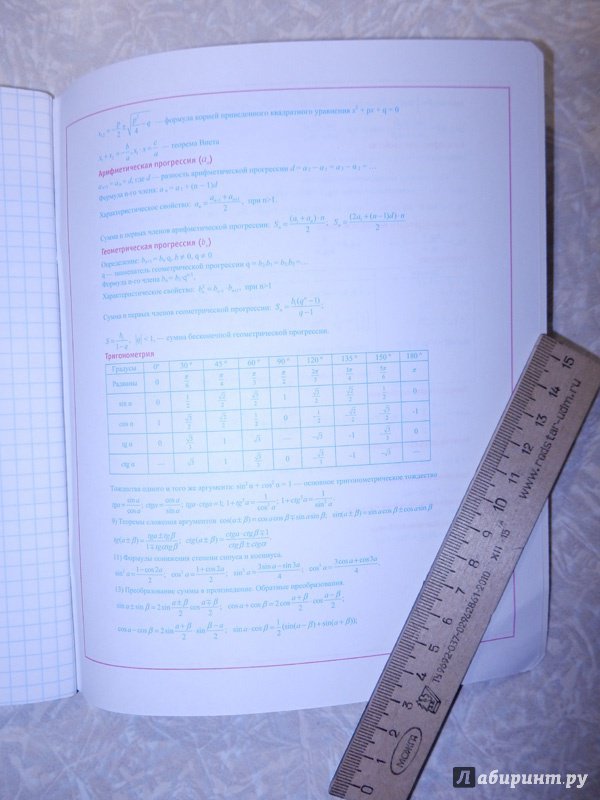 x₁,₂ = -p/2 ± √(p²/4 - q) — формула корней приведенного квадратного уравнения x² + px + q = 0
x₁ + x₂ = -b/a, x₁ · x₂ = c/a — теорема Виета
Арифметическая прогрессия (aₙ)
aₙ₊₁ = aₙ + d, где d — разность арифметической прогрессии d = a₂ – a₁ = a₃ – a₂ = …
Формула n-го члена: aₙ = a₁ + (n – 1)d
Характеристическое свойство: aₙ = (aₙ₋₁ + aₙ₊₁)/2, при n>1.
Сумма n первых членов арифметической прогрессии: Sₙ = (a₁ + aₙ) · n/2; Sₙ = (2a₁ + (n – 1)d) · n/2
Геометрическая прогрессия (bₙ)
Определение: bₙ₊₁ = bₙ q, b ≠ 0, q ≠ 0
q — знаменатель геометрической прогрессии
Формула n-го члена bₙ = b₁ qⁿ⁻¹.
Характеристическое свойство: bₙ² = bₙ₋₁ · bₙ₊₁, при n>1
Сумма n первых членов геометрической прогрессии: Sₙ = b₁(qⁿ –1)/(q –1);
S = b₁/(1–q), |q| < 1, — сумма бесконечной геометрической прогрессии.
Тригонометрия
Градусы 0° 30° 45° 60° 90° 120° 135° 150° 180°
Радианы 0 π/6 π/4 π/3 2π/3 5π/6 π
sin α 0 1/2 √2/2 √3/2 1 √3/2 √2/2 1/2 0
cos α 1 √3/2 √2/2 1/2 0 -1/2 -1
tg α 0 √3/3 1 √3 — -√3 -1 0
ctg α — √3 1 √3/3 0 -1 -√3 —
Тождества одного и того же аргумента: sin² α + cos² α = 1 — основное тригонометрическое тождество
tgα = sinα/cosα; ctgα = cosα/sinα; tgα · ctgα = 1; 1 + tg²α = 1/cos²α; 1 + ctg²α = 1/sin²α;
9) Теоремы сложения аргументов: cos(α ± β) = cosα cosβ ∓ sinα sinβ; sin(α ± β) = sinα cosβ ± cosα sinβ
tg(α ± β) = (tgα ± tgβ)/(1 ∓ tgα tgβ); ctg(α ± β) = (ctgα · ctgβ ∓ 1)/(ctgβ ± ctgα)
11) Формулы понижения степени синуса и косинуса.
sin²α = (1–cos2α)/2; cos²α = (1+cos2α)/2; sin³α = (3sinα – sin3α)/4; cos³α = (3cosα + cos3α)/4
13) Преобразование суммы в произведение. Обратные преобразования.
sinα ± sinβ = 2sin (α ± β)/2 · cos (α ∓ β)/2; cosα + cosβ = 2cos (α + β)/2 · cos (α – β)/2;
cosα – cosβ = 2sin (α + β)/2 · sin (β – α)/2; sinα · cosβ = 1/2 (sin(α – β) + sin(α + β));
0 1 2 3 4 5 6 7 8 9 10 11 12 13 14 15
МОЖГА
ТУ 9692-037-00962861-2010
www.rodstar-udm.ru
Лабиринт.ру